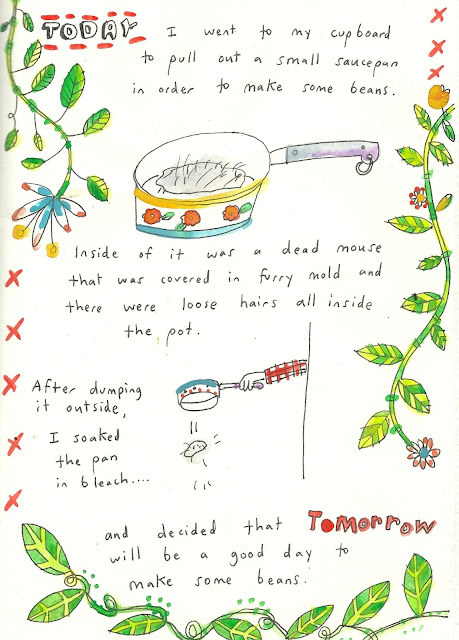 TODAY I went to my cupboard
to pull out a small saucepan
in order to make some beans.
Inside of it was a dead mouse
that was covered in furry mold and
there were loose hairs all inside
the pot.
After dumping
it outside,
I soaked
the pan
in bleach....
and decided that TOMORROW
will be a good day to
make some beans.